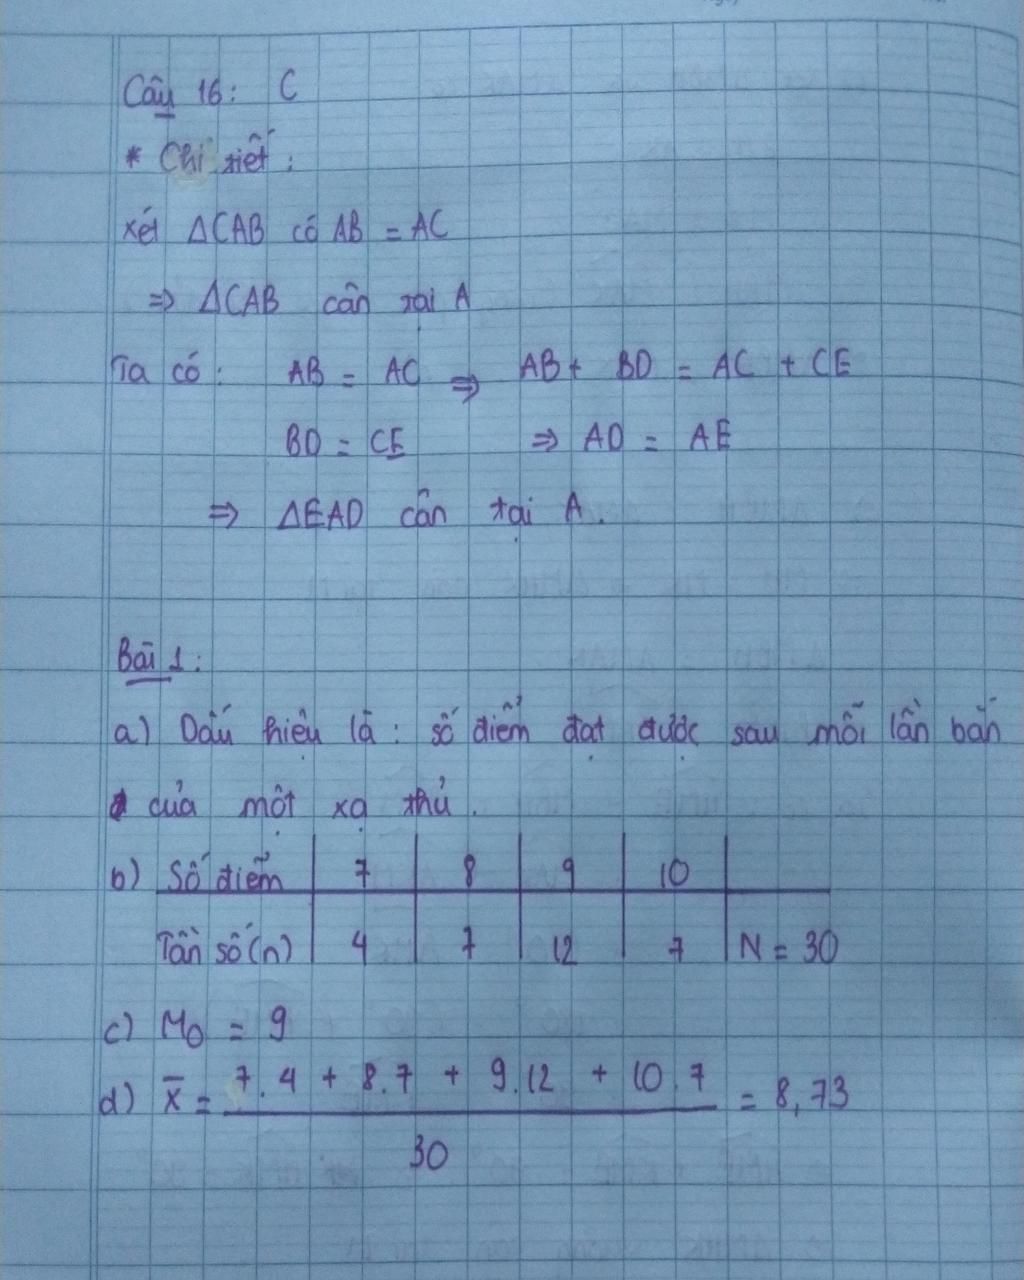 Câu 16: C
* Chi tiết:
xét ΔCAB có AB = AC
⇒ ΔCAB cân tại A
Ta có: AB = AC ⇒ AB + BD = AC + CE
BD = CE ⇒ AD = AE
⇒ ΔEAD cân tại A.
Bài 1:
a) Dấu hiệu là: số điểm đạt được sau mỗi lần bắn
của một xạ thủ.
b) Số điểm | 7 | 8 | 9 | 10 |
Tần số (n) | 4 | 7 | 12 | 7 | N = 30
c) M₀ = 9
d) X̄ = (7.4 + 8.7 + 9.12 + 10.7) / 30 = 8,73